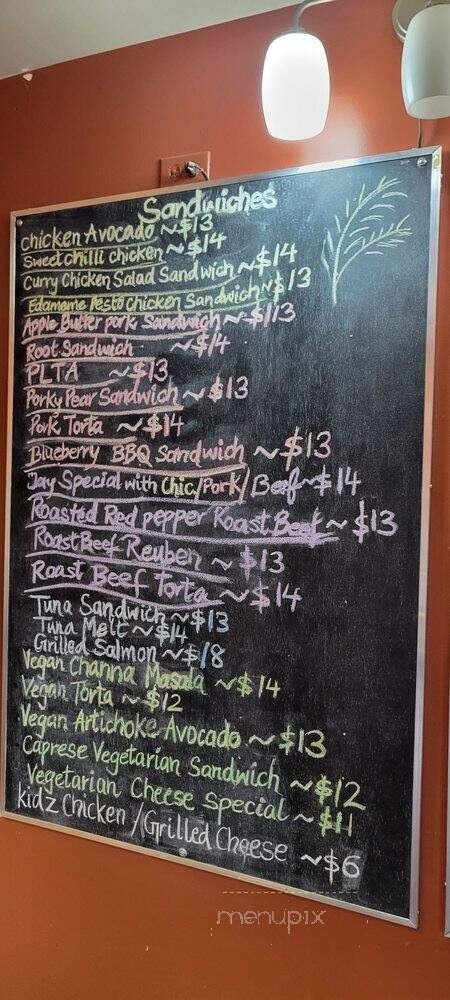 Sandwiches
Chicken Avocado ~$13
Sweet chilli chicken ~$14
Curry Chicken Salad Sandwich ~$14
Edamame Pesto Chicken Sandwich ~$13
Apple Butter pork Sandwich ~$13
Root Sandwich ~$14
PLTA ~$13
Porky Pear Sandwich ~$13
Pork Torta ~$14
Blueberry BBQ Sandwich ~$13
Jay Special with Chic/Pork/Beef ~$14
Roasted Red pepper Roast Beef ~$13
Roast Beef Reuben ~$13
Roast Beef Torta ~$14
Tuna Sandwich ~$13
Tuna Melt ~$14
Grilled Salmon ~$18
Vegan Channa Masala ~$14
Vegan Torta ~$12
Vegan Artichoke Avocado ~$13
Caprese Vegetarian Sandwich ~$12
Vegetarian Cheese Special ~$11
kidz Chicken/Grilled Cheese ~$6
menupix